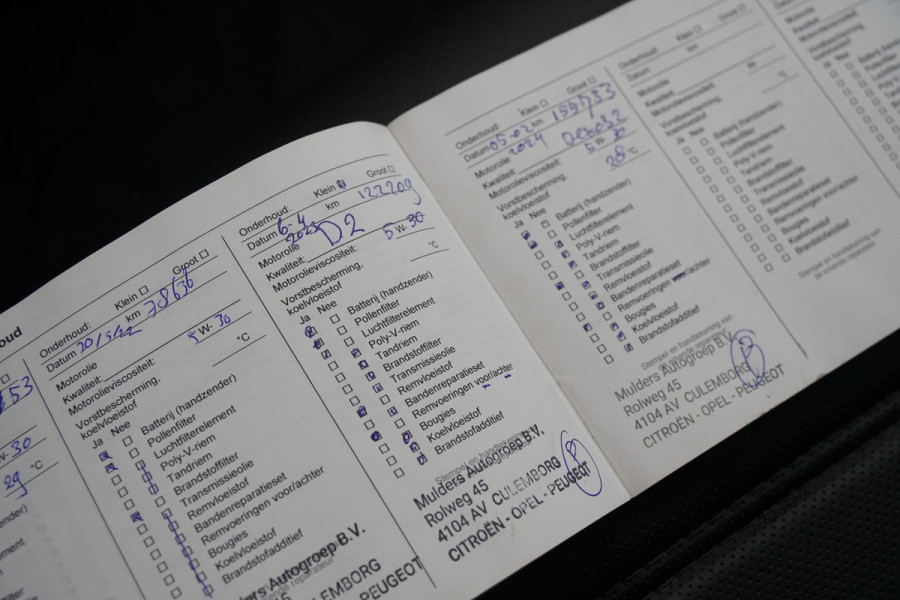 oud
553
W- 30
29 °C
Onderhoud: Klein Groot
Datum 20/5/22 km 78636
Motorolie
Kwaliteit:
Motorolieviscositeit: 5 W- 30
Vorstbescherming, °C
koelvloeistof
Ja Nee
Batterij (handzender)
Pollenfilter
Luchtfilterelement
Poly-V-riem
Tandriem
Brandstoffilter
Transmissieolie
Remvloeistof
Bandenreparatieset
Remvoeringen voor/achter
Bougies
Koelvloeistof
Brandstofadditief
Autogroep B.V.
CULEMBORG
PEUGEOT
Onderhoud: Klein Groot
Datum 6-4 2023 km 122209
Motorolie D2
Kwaliteit:
Motorolieviscositeit: 5 W- 30
Vorstbescherming, °C
koelvloeistof
Ja Nee
Batterij (handzender)
Pollenfilter
Luchtfilterelement
Poly-V-riem
Tandriem
Brandstoffilter
Transmissieolie
Remvloeistof
Bandenreparatieset
Remvoeringen voor/achter
Bougies
Koelvloeistof
Brandstofadditief
Stempel en handtekening
Mulders Autogroep B.V.
Rolweg 45
4104 AV CULEMBORG
CITROËN - OPEL - PEUGEOT
Onderhoud: Klein Groot
Datum 05-02 2024 km 155733
Motorolie
Kwaliteit:
Motorolieviscositeit: 5 W- 30
Vorstbescherming, 28 °C
koelvloeistof
Ja Nee
Batterij (handzender)
Pollenfilter
Luchtfilterelement
Poly-V-riem
Tandriem
Brandstoffilter
Transmissieolie
Remvloeistof
Bandenreparatieset
Remvoeringen voor/achter
Bougies
Koelvloeistof
Brandstofadditief
Stempel en handtekening van
Mulders Autogroep B.V.
Rolweg 45
4104 AV CULEMBORG
CITROËN - OPEL - PEUGEOT
Onderhoud: Klein Groot
Datum km
Motorolie
Kwaliteit:
Motorolieviscositeit:
Vorstbescherming, °C
koelvloeistof
Ja Nee
Batterij (handzender)
Pollenfilter
Luchtfilterelement
Poly-V-riem
Tandriem
Brandstoffilter
Transmissieolie
Remvloeistof
Bandenreparatieset
Remvoeringen voor/achter
Bougies
Koelvloeistof
Brandstofadditief
Stempel en handtekening van
de erkende reparateur